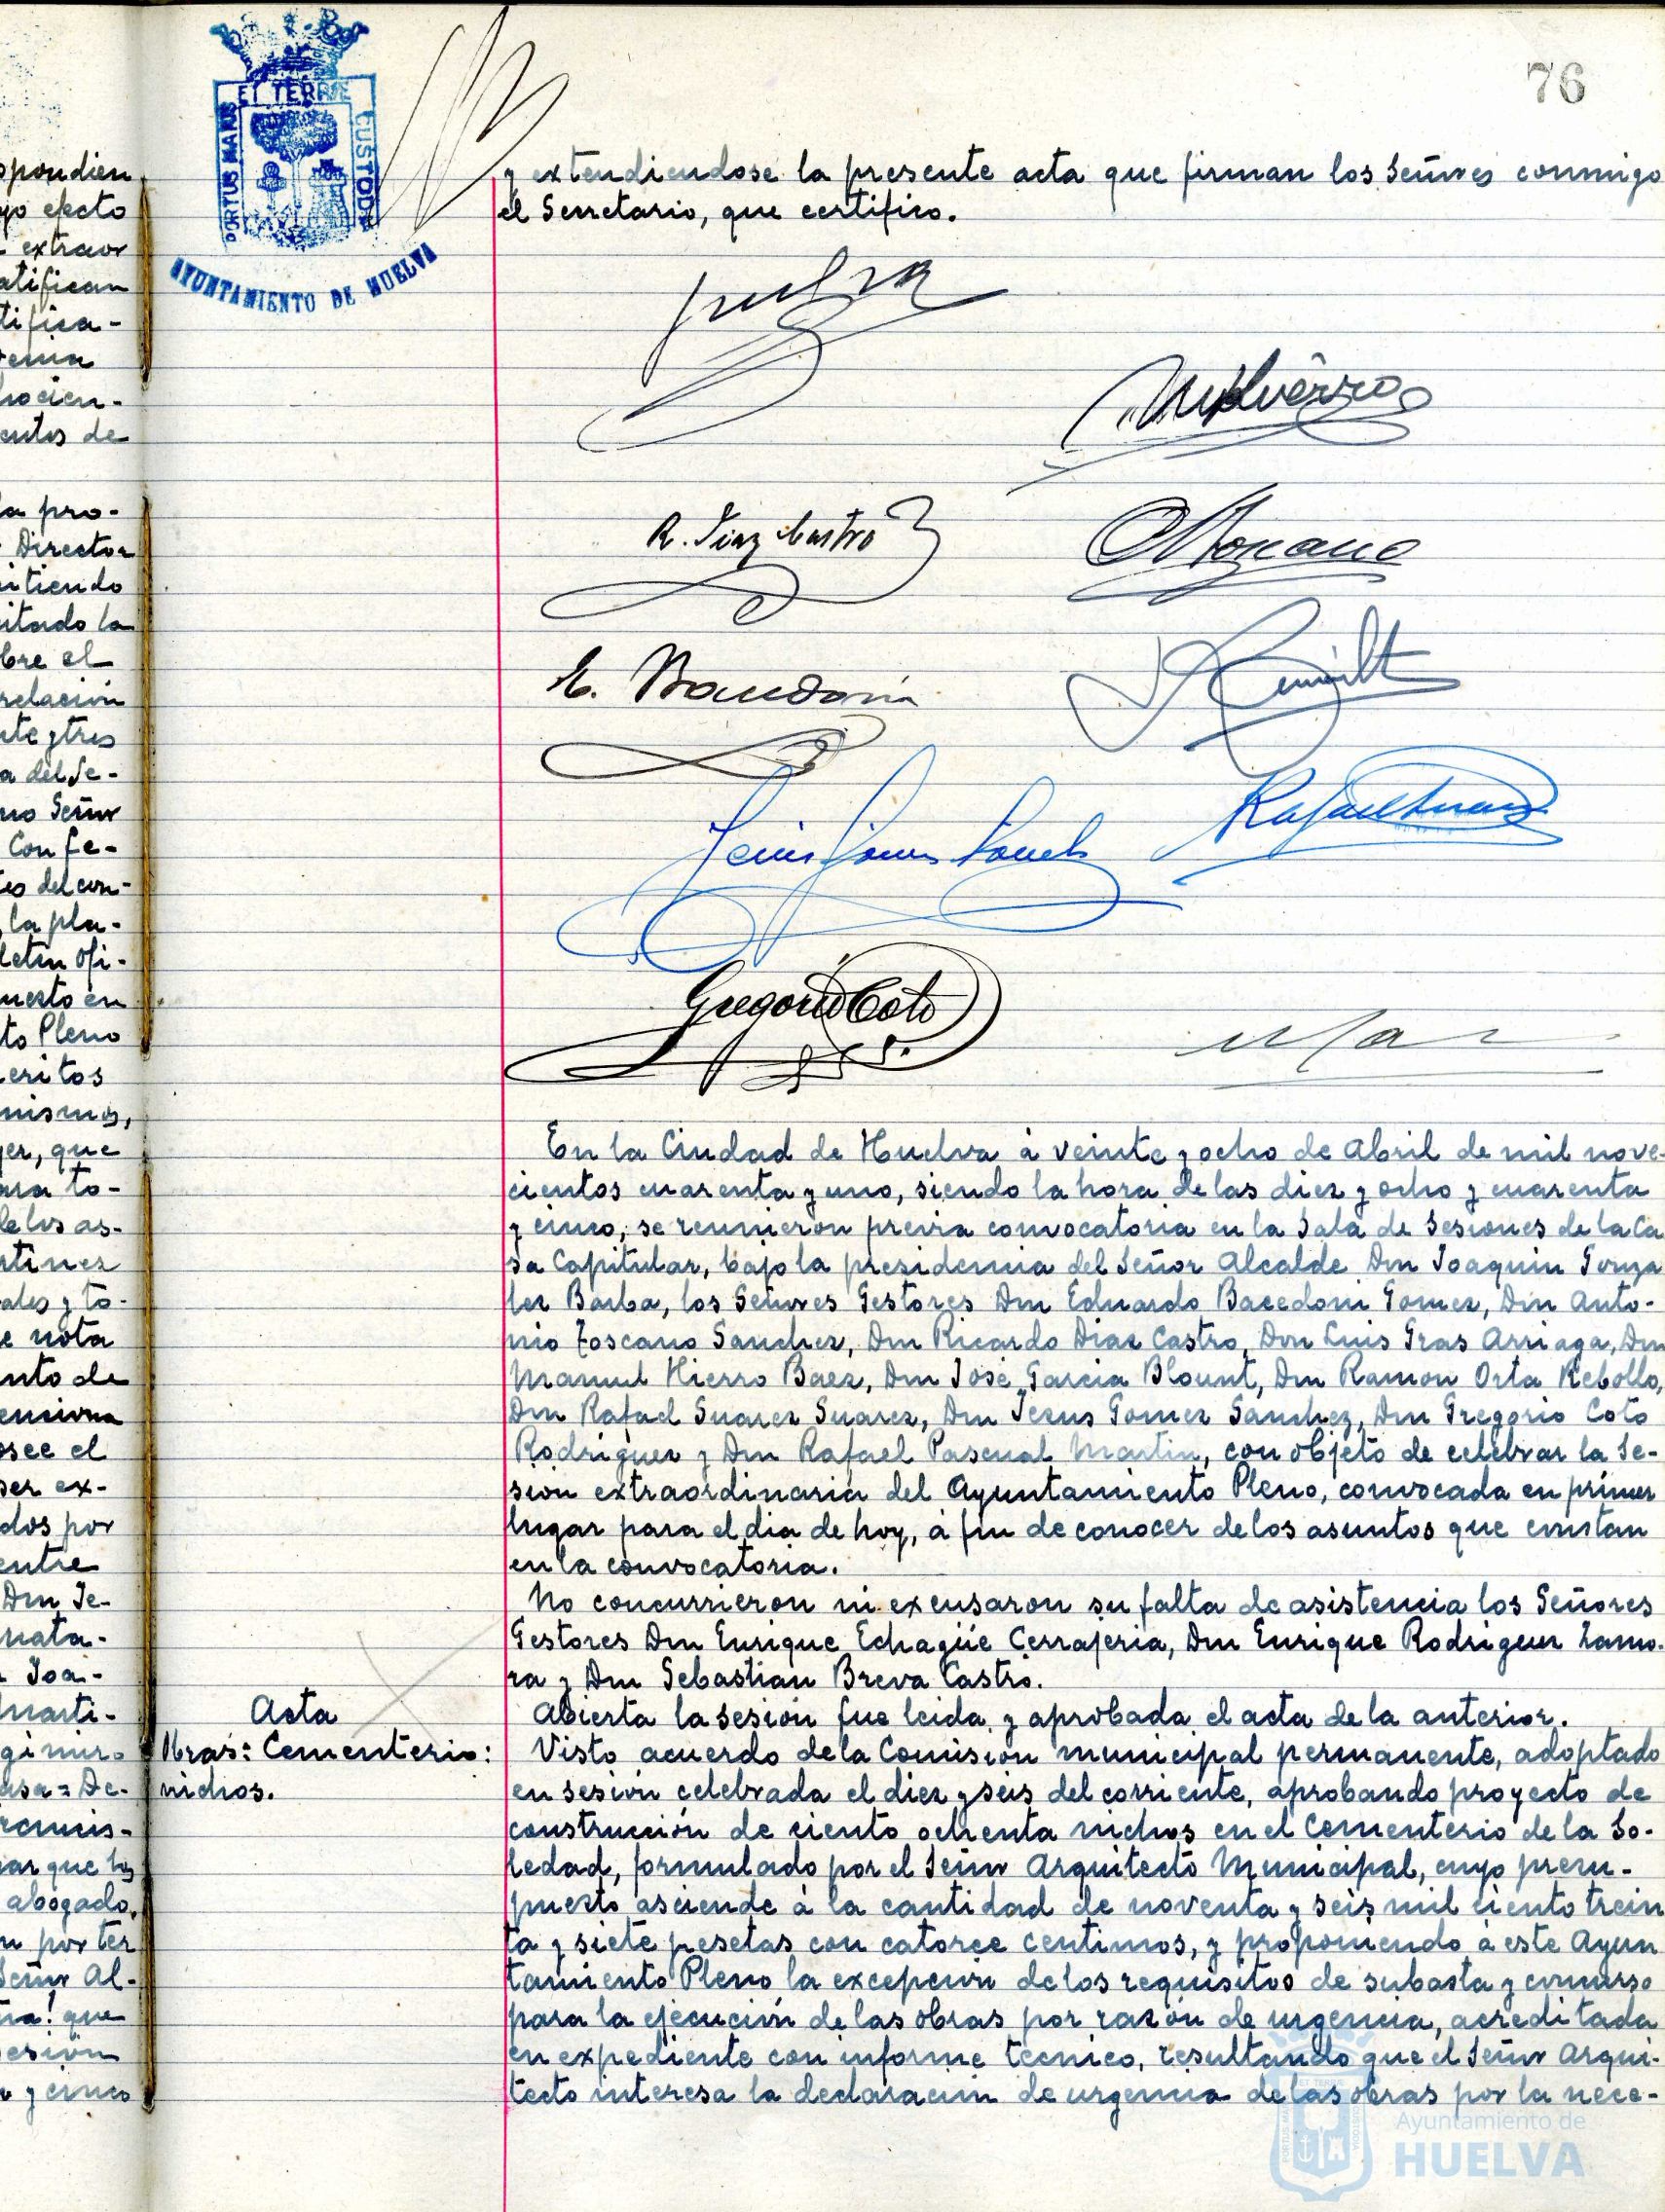 76
PORTUS MARIS ET TERRAE CUSTODIA
AYUNTAMIENTO DE HUELVA
spondien
yo efecto
extraor
atifican
tifica-
entos de
la pro-
Director
itiendo
itado la
bre el
relación
nte y tres
a del Se-
no Señor
Con fe-
tes del con-
la pla-
letin Ofi-
uesto en
to Pleno
eritos
mismos,
yer, que
ara to-
de los as-
rtinez
ales y to-
e nota
nto de
osee el
ser ex-
dos por
entre
Don Je-
nata-
Joa-
Marti-
asa = De-
rancis-
abogado,
n por ter
Señor Al-
que
esion
y cinco
y extendiendose la presente acta que firman los Señores conmigo
el Secretario, que certifico.
R. Diaz Castro
Toscano
E. Bacedoni
Jesus Gomez Sanchez
Rafael Suarez
Gregorio Coto
En la Ciudad de Huelva à veinte y ocho de Abril de mil nove-
cientos cuarenta y uno, siendo la hora de las diez y ocho y cuarenta
y cinco, se reunieron previa convocatoria en la Sala de Sesiones de la Ca
sa Capitular, bajo la presidencia del Señor Alcalde Don Joaquin Gonza
lez Barba, los Señores Gestores Don Eduardo Bacedoni Gomez, Don Anto-
nio Toscano Sanchez, Don Ricardo Diaz Castro, Don Luis Gras Arriaga, Don
Manuel Hierro Baez, Don José Garcia Blount, Don Ramon Orta Rebollo,
Don Rafael Suarez Suarez, Don Jesus Gomez Sanchez, Don Gregorio Coto
Rodriguez y Don Rafael Pascual Martin, con objeto de celebrar la Se-
sion extraordinaria del Ayuntamiento Pleno, convocada en primer
lugar para el dia de hoy, à fin de conocer de los asuntos que constan
en la convocatoria.
No concurrieron ni excusaron su falta de asistencia los Señores
Gestores Don Enrique Echagüe Cerrajeria, Don Enrique Rodriguez Zamo-
ra y Don Sebastian Breva Castro.
Acta
Abierta la sesion fue leida y aprobada el acta de la anterior.
Obras: Cementerio:
nichos.
Visto acuerdo de la Comision municipal permanente, adoptado
en sesion celebrada el diez y seis del corriente, aprobando proyecto de
construcción de ciento ochenta nichos en el Cementerio de la So-
ledad, formulado por el Señor Arquitecto Municipal, cuyo presu-
puesto asciende à la cantidad de noventa y seis mil ciento trein
ta y siete pesetas con catorce centimos, y proponiendo à este Ayun
tamiento Pleno la excepcion de los requisitos de subasta y concurso
para la ejecución de las obras por razón de urgencia, acreditada
en expediente con informe tecnico, resultando que el Señor Arqui-
tecto interesa la declaracion de urgencia de las obras por la nece-
Ayuntamiento de
HUELVA